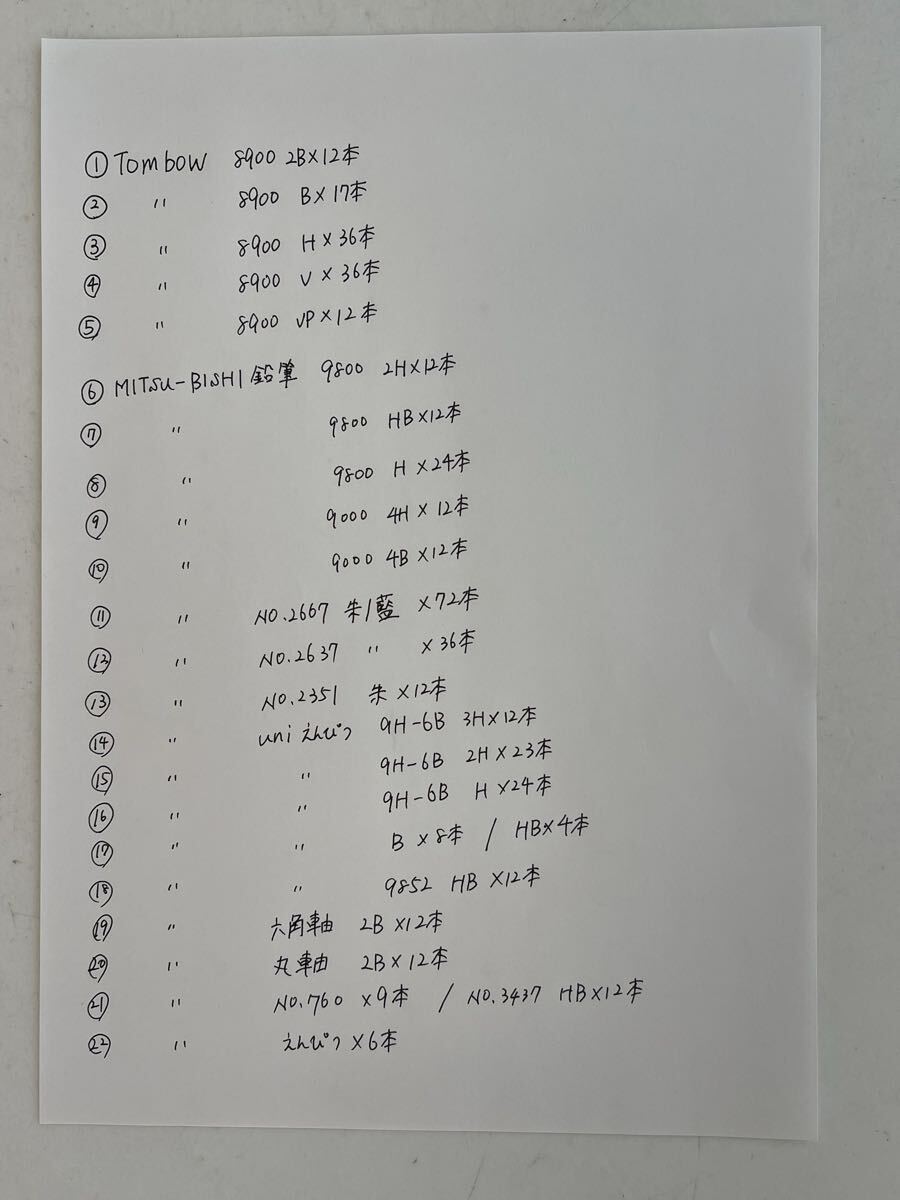 ① Tombow 8900 2B×12本
② 〃 8900 B×17本
③ 〃 8900 H×36本
④ 〃 8900 V×36本
⑤ 〃 8900 VP×12本
⑥ MITSU-BISHI 鉛筆 9800 2H×12本
⑦ 〃 9800 HB×12本
⑧ 〃 9800 H×24本
⑨ 〃 9000 4H×12本
⑩ 〃 9000 4B×12本
⑪ 〃 NO.2667 朱/藍 ×72本
⑫ 〃 NO.2637 〃 ×36本
⑬ 〃 NO.2351 朱×12本
⑭ 〃 uni えんぴつ 9H-6B 3H×12本
⑮ 〃 〃 9H-6B 2H×23本
⑯ 〃 〃 9H-6B H×24本
⑰ 〃 〃 B×8本 / HB×4本
⑱ 〃 〃 9852 HB×12本
⑲ 〃 六角軸 2B×12本
⑳ 〃 丸軸 2B×12本
㉑ 〃 NO.760 ×9本 / NO.3437 HB×12本
㉒ 〃 えんぴつ×6本